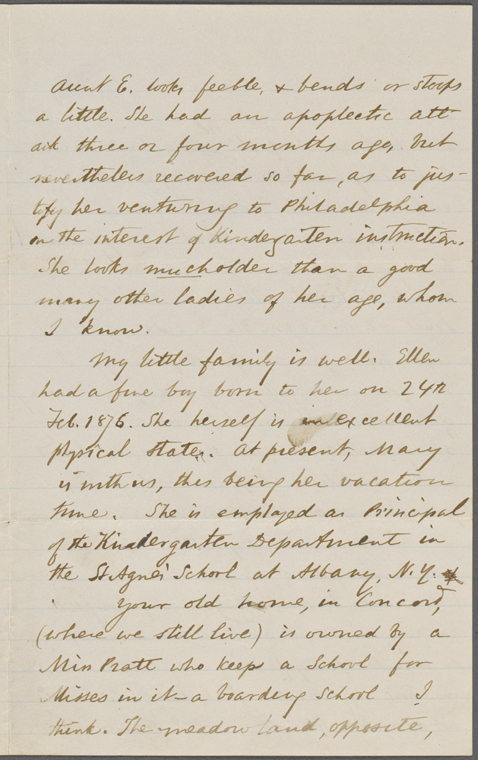 Aunt E. looks feeble, & bends or stoops
a little. She had an apoplectic att
ack three or four months ago, but
nevertheless recovered so far, as to jus-
tify her venturing to Philadelphia
in the interest of Kindergarten instruction.
She looks much older than a good
many other ladies of her age, whom
I know.
My little family is well. Ellen
had a fine boy born to her on 24th
Feb. 1876. She herself is in excellent
physical state. At present, Mary
is with us, this being her vacation
time. She is employed as Principal
of the Kindergarten Department in
the St Agnes' School at Albany, N.Y.
Your old home, in Concord,
(where we still live) is owned by a
Miss Pratt who keeps a School for
Misses in it – a boarding School I
think. The meadow land, opposite,